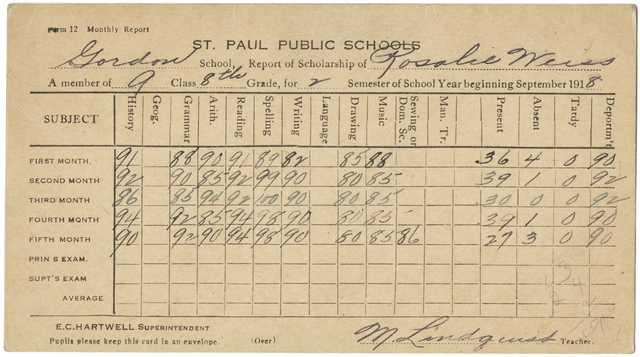 Form 12 Monthly Report
ST. PAUL PUBLIC SCHOOLS
Gordon School, Report of Scholarship of Rosalie Weiss
A member of A Class 8th Grade, for 2 Semester of School Year beginning September 1918
SUBJECT History Geog. Grammar Arith. Reading Spelling Writing Language Drawing Music Sewing or Dom. Sc. Man. Tr. Present Absent Tardy Deportm't
FIRST MONTH. 91 88 90 91 89 82 85 88 36 4 0 90
SECOND MONTH 92 90 85 92 99 90 80 85 39 1 0 92
THIRD MONTH 86 85 94 92 100 90 80 85 30 0 0 92
FOURTH MONTH 94 92 85 94 98 90 81 85 39 1 0 90
FIFTH MONTH 90 92 90 94 98 90 80 85 86 27 3 0 90
PRIN'S EXAM.
SUPT'S EXAM
AVERAGE
E.C. HARTWELL SUPERINTENDENT
M Lindquist Teacher.
Pupils please keep this card in an envelope. (Over)